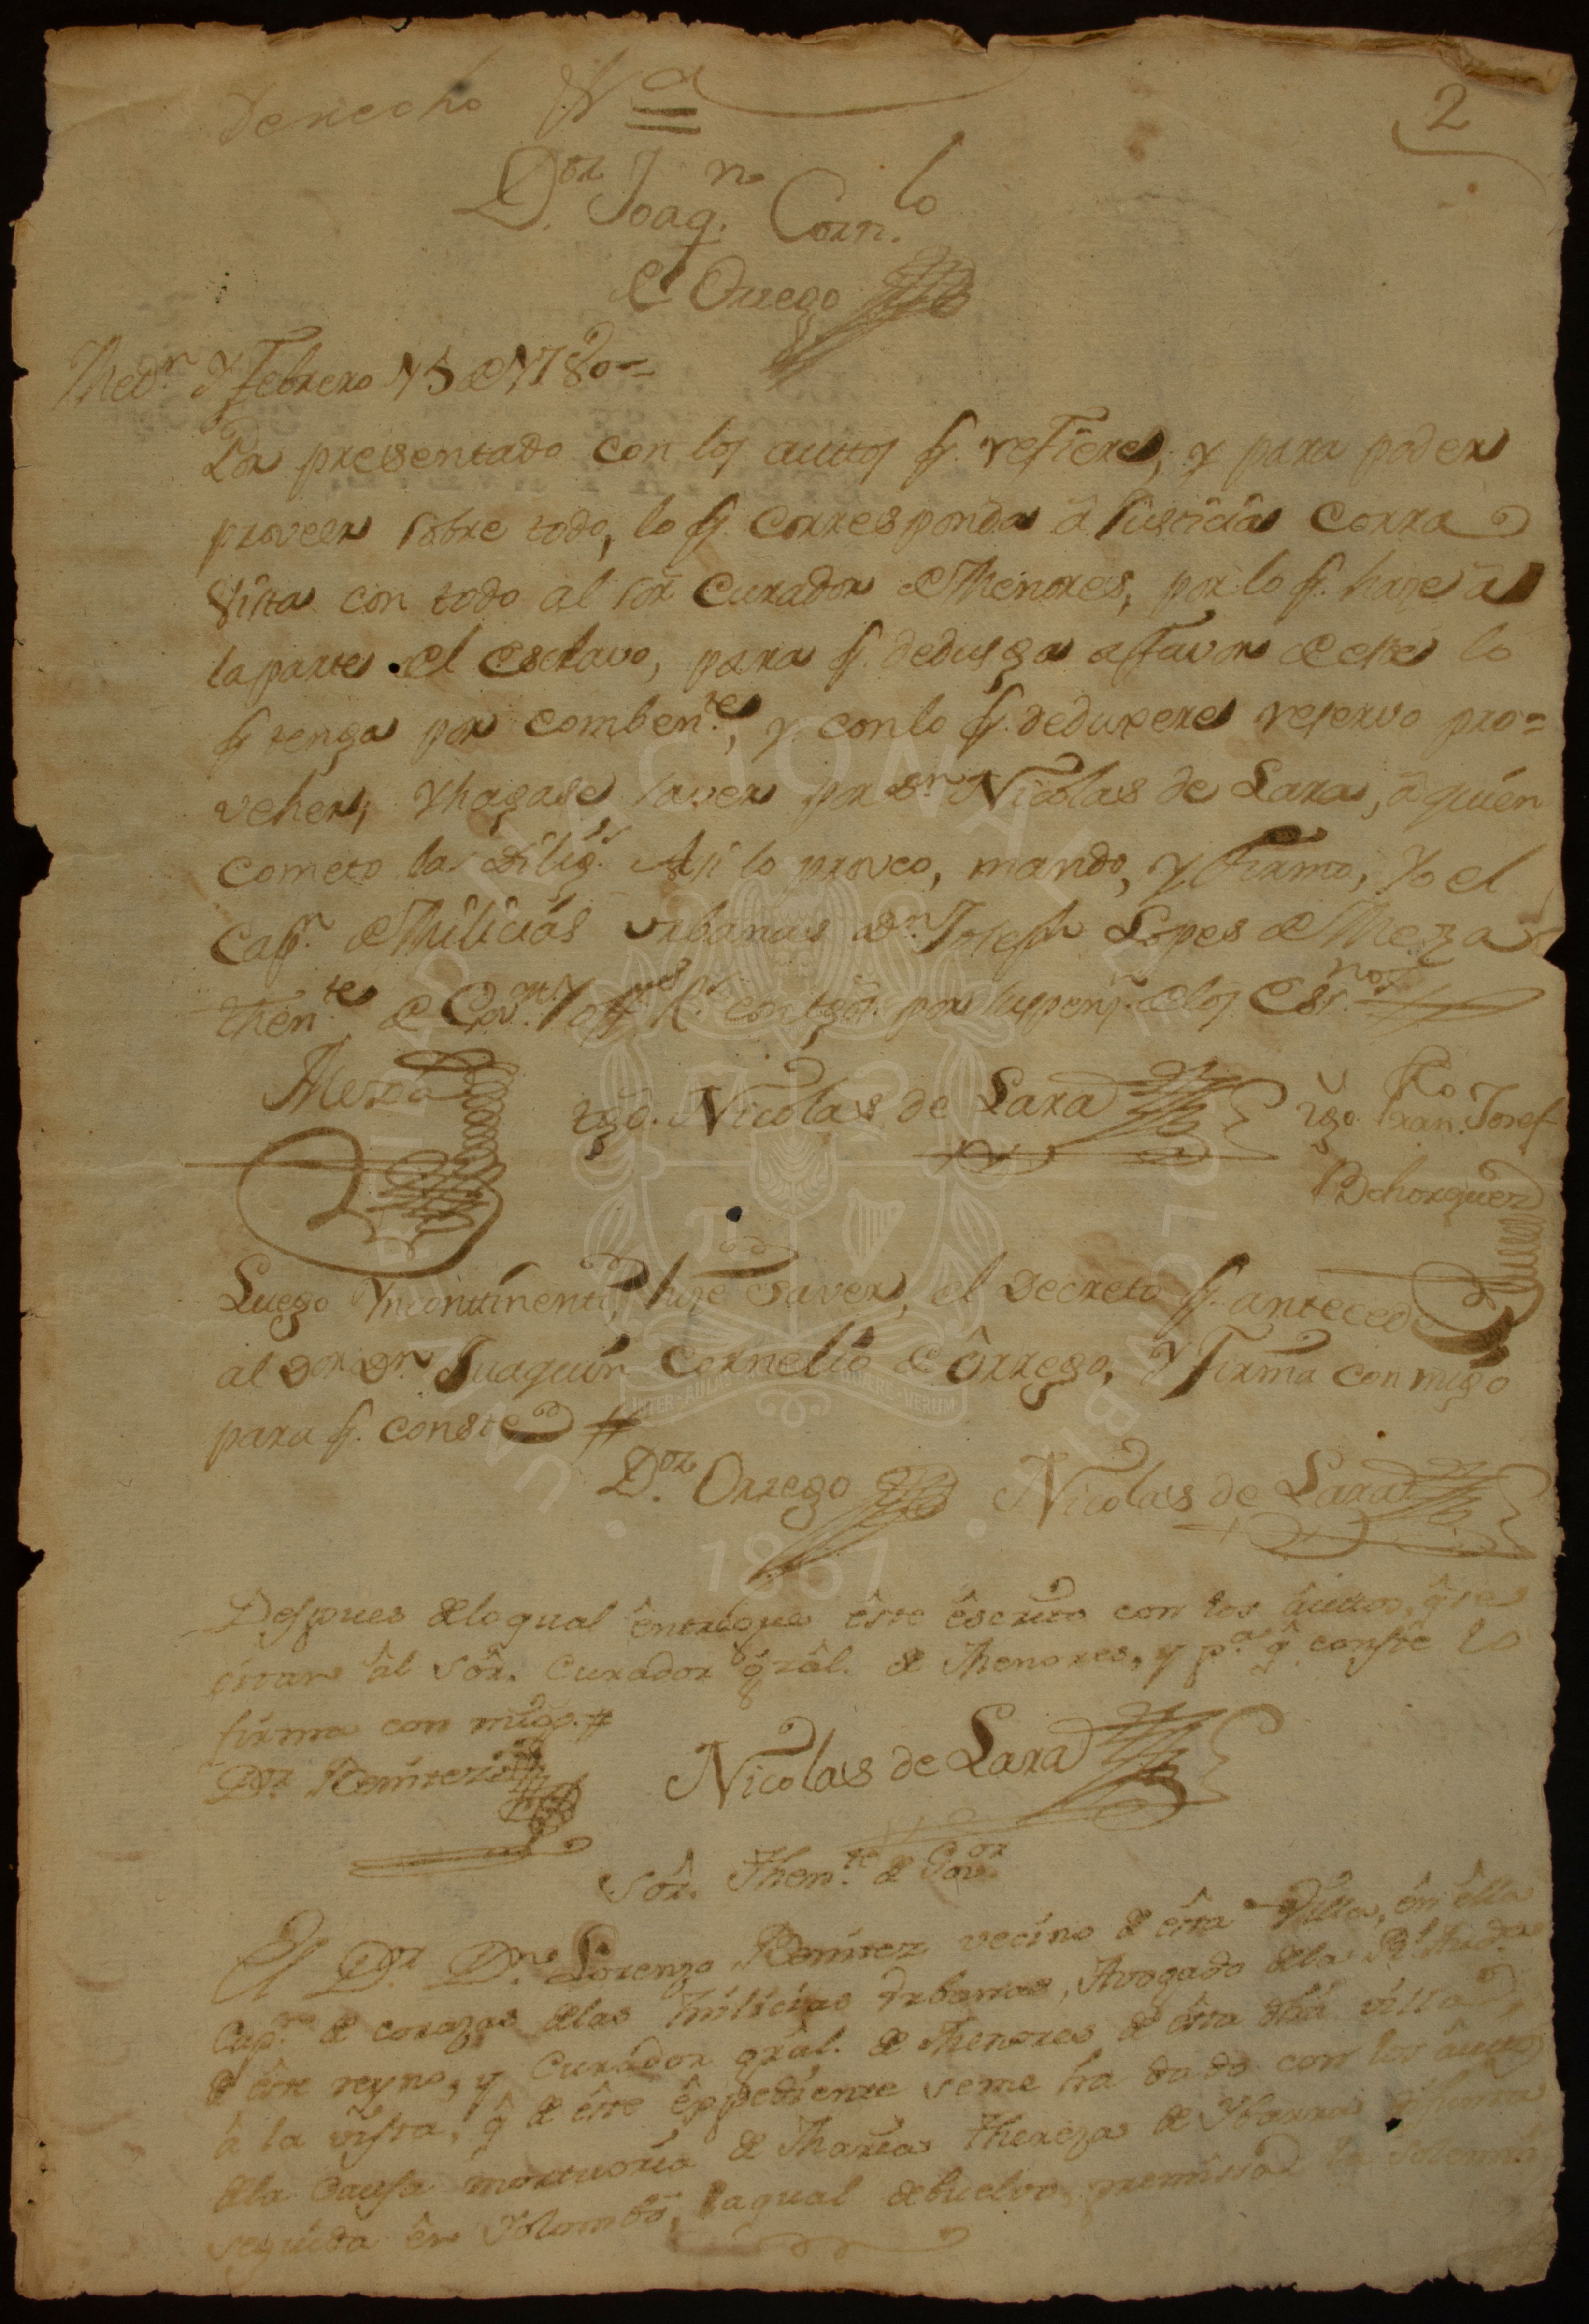 Derecho Vª
2
D.ᵒʳ Joaq.ⁿ Corn.ˡᵒ
de Orrego
Med.ⁿ y Febrero 15 de 1780=
Por presentado con los auttos q. refiere, y para poder
proveer sobre todo, lo q. corresponda â Justicia corra
vista con todo al sor Curador de Menores, por lo q. haze â
la parte del esclavo, para q. dedusga a favor de este lo
q tenga por comben.ᵗᵉ, y con lo q. deduxere reservo pro=
veher, y hagase saver por Dⁿ Nicolas de Lara, â quien
cometo las dilig.ˢ Asi lo proveo, mando, y firmo, Yo el
Capⁿ. de Milicias Urbanas Dⁿ. Joseph Lopes de Meza
Then.ᵗᵉ de Gov.ᵒʳ con tgos. por suspenç. de los Esr.ⁿᵒˢ
Meza
tgo. Nicolas de Lara
tgo. Fran.ᶜᵒ Josef
Bohorquez
Luego Yncontinenti, hize saver, el Decreto q. antecede
al Dor Dn Juaquin Cornelio de Ôrrego, y Firma conmigo
para q. conste #
D.ᵒʳ Orrego Nicolas de Lara
Despues de lo qual entregue êste êscrito con los âuttos, q̂ se
citan âl Sôr. Curador grâl. de Menores, y p.ª q̂ conste lo
firma con migo. #
Dor Benitez
Nicolas de Lara
Sôr. Then.ᵗᵉ de Gov.ᵒʳ
El Dr. Dn. Lorenzo Benitez vecino de êsta Villa, ên êlla
Capⁿ de corazas de las Milicias Urbanas, Avogado de la Rˡ. Aud.ª
de êste reyno, y Curador grâl. de Menores de êsta dhâ villa,
â la vista, q̂ de êste êxpediente se me ha dado con los âuttos
de la Causa mortuoria de Maria Thereza de Ybarra
seguida ên Yolombô, la qual debuelvo, premissa la solemni